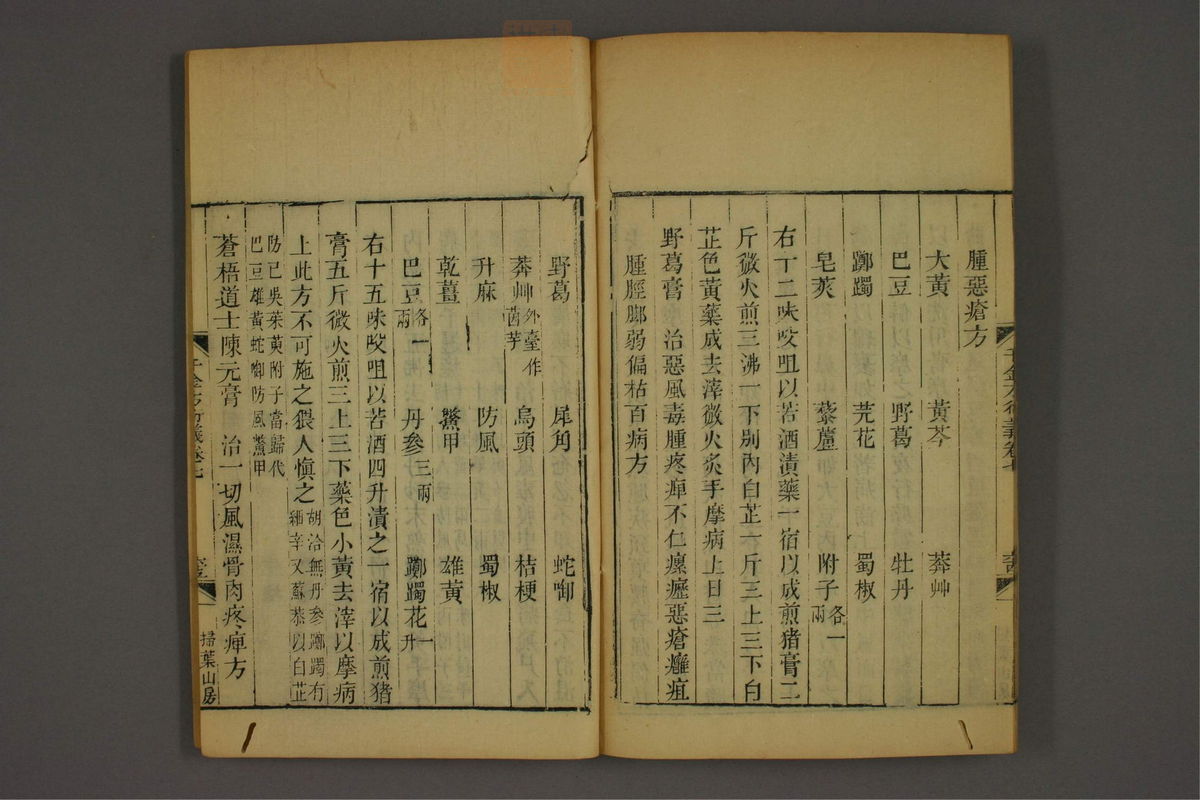 腫惡瘡方
大黃 黃芩 莽艸
巴豆 野葛 牡丹
躑躅 芫花 蜀椒
皂莢 藜蘆 附子各一兩
右十二味㕮咀以苦酒漬藥一宿以成煎猪膏二
斤微火煎三沸一下別內白芷一斤三上三下白
芷色黃藥成去滓微火炙手摩病上日三
野葛膏 治惡風毒腫疼痺不仁瘰癧惡瘡癰疽
腫脛腳弱偏枯百病方
千金方衍義卷七
野葛 犀角 蛇啣
莽艸外臺作茵芋 烏頭 桔梗
升麻 防風 蜀椒
乾薑 鱉甲 雄黃
巴豆各一兩 丹參三兩 躑躅花一升
右十五味㕮咀以苦酒四升漬之一宿以成煎猪
膏五斤微火煎三上三下藥色小黃去滓以摩病
上此方不可施之猥人慎之胡洽無丹參躑躅有細辛又蘇恭以白芷
防己吳茱萸附子當歸代巴豆雄黃蛇啣防風鱉甲
蒼梧道士陳元膏 治一切風濕骨肉疼痺方
千金方衍義卷七
掃葉山房